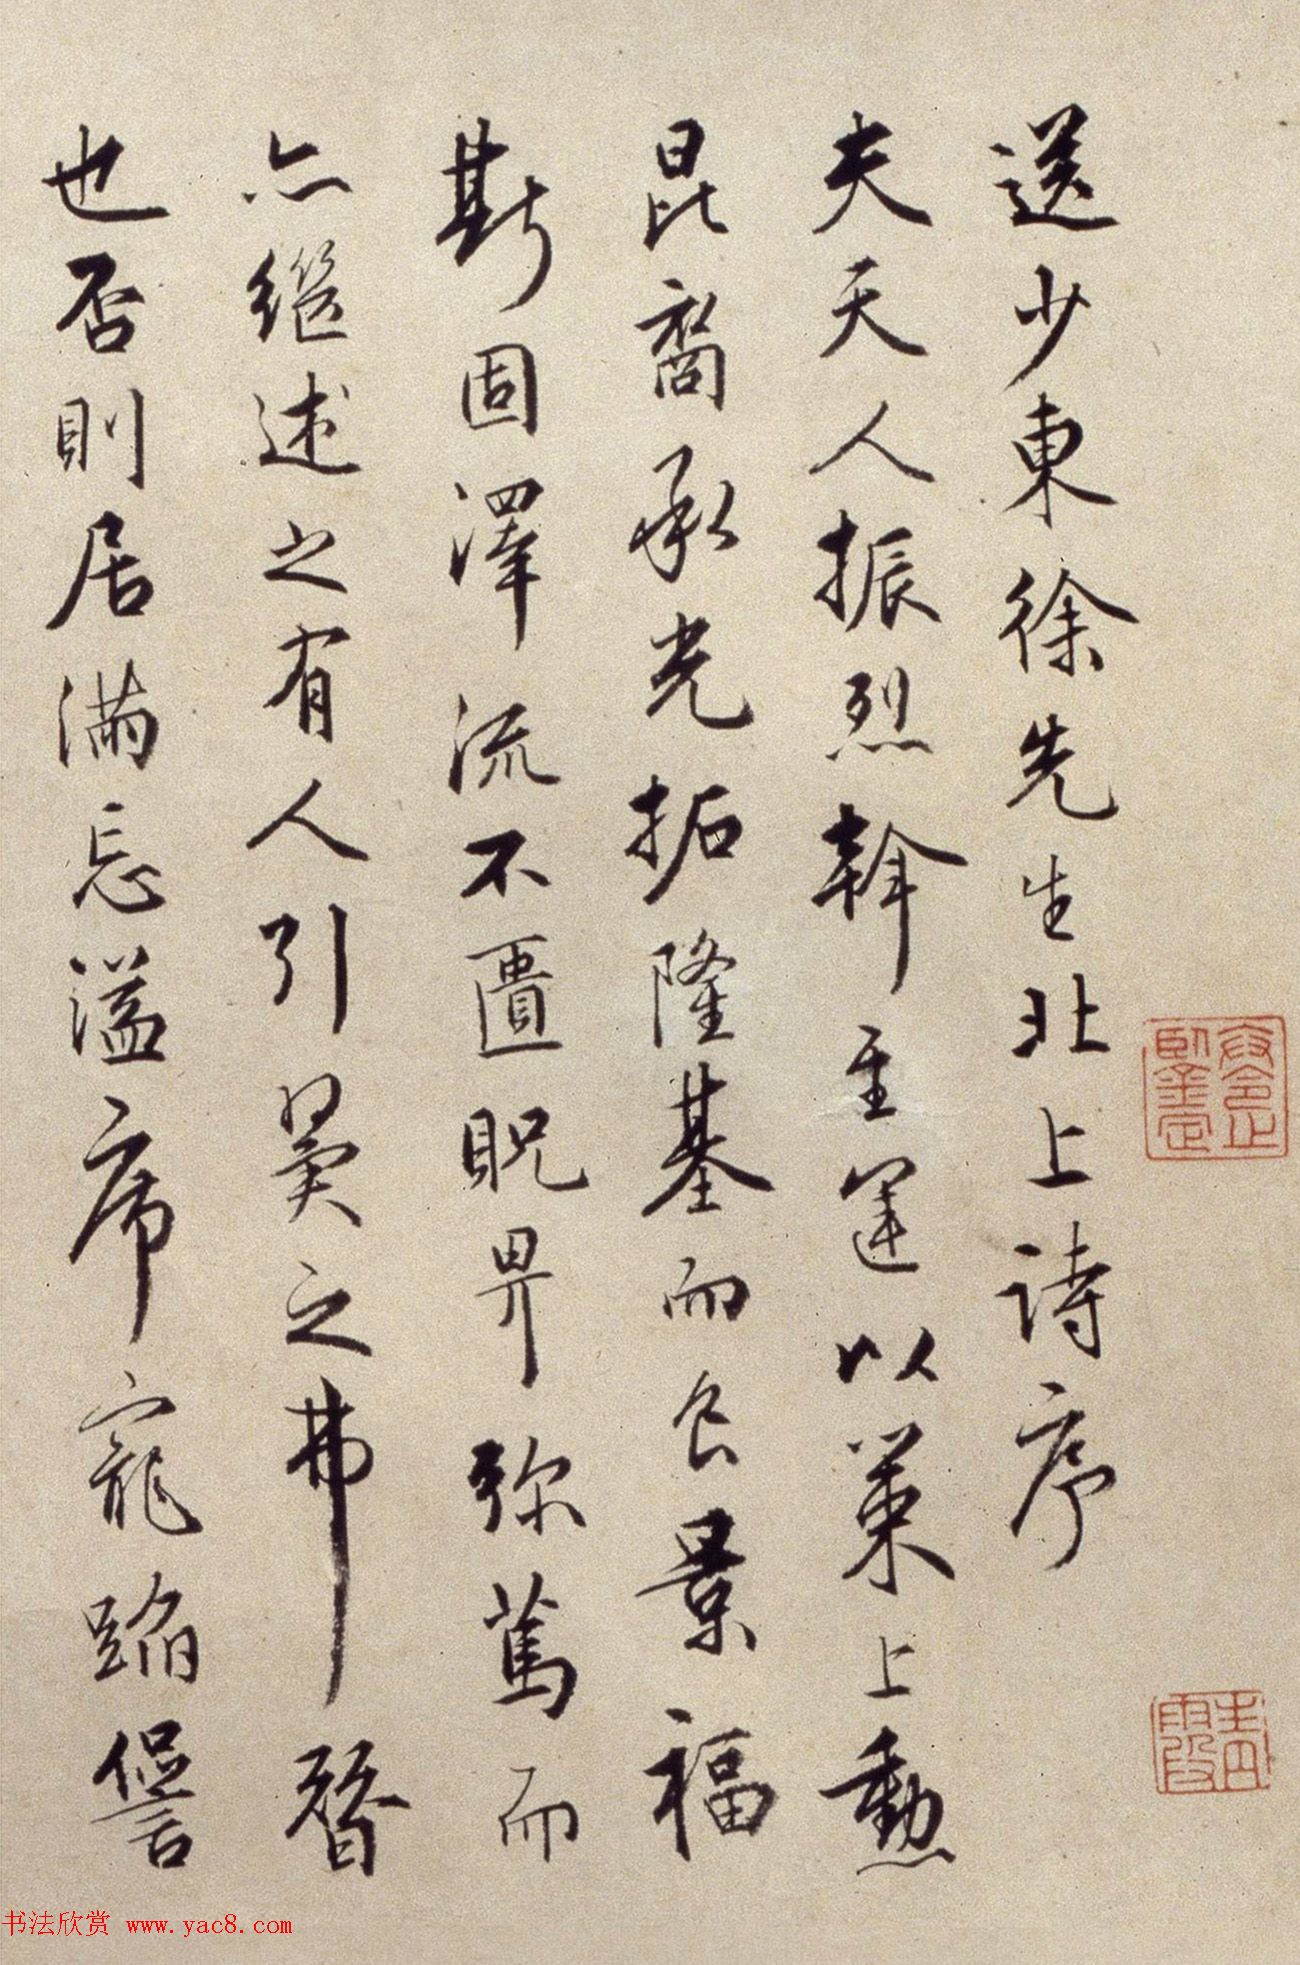 送少東徐先生北上詩序
夫天人振烈斡主運以策上勳
昆裔承光拓隆基而食景福
斯固澤流不匱貺畀弥篤而
亦继述之有人引翼之弗替
也否則居滿忘溢席寵蹈僁
书法欣赏 www.yac8.com